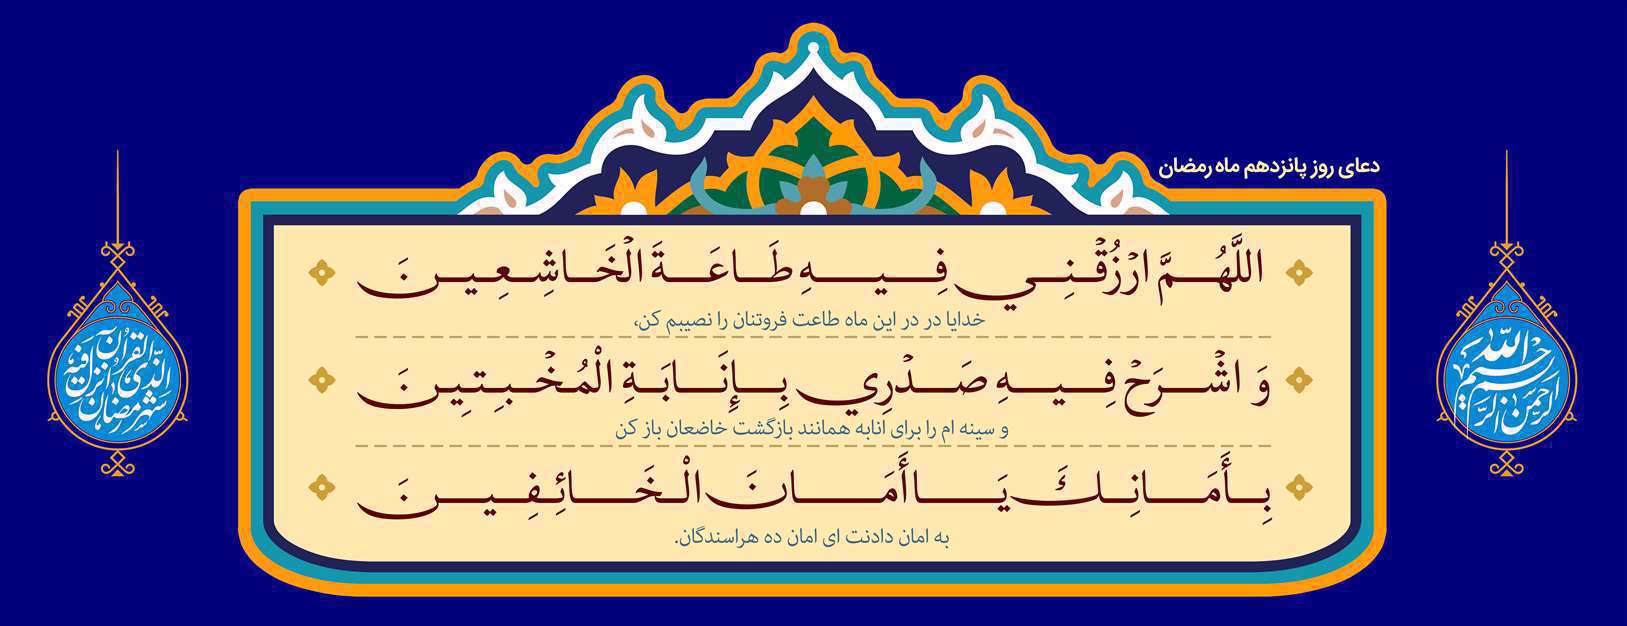 دعای روز پانزدهم ماه رمضان
بسم الله الرحمن الرحیم
اللَّهُمَّ ارْزُقْنِي فِيهِ طَاعَةَ الْخَاشِعِينَ
خدایا در در این ماه طاعت فروتنان را نصیبم کن،
وَ اشْرَحْ فِيهِ صَدْرِي بِإِنَابَةِ الْمُخْبِتِينَ
و سینه ام را برای انابه همانند بازگشت خاضعان باز کن
بِأَمَانِكَ يَا أَمَانَ الْخَائِفِينَ
به امان دادنت ای امان ده هراسندگان.
شهر رمضان الذی انزل فیه القرآن